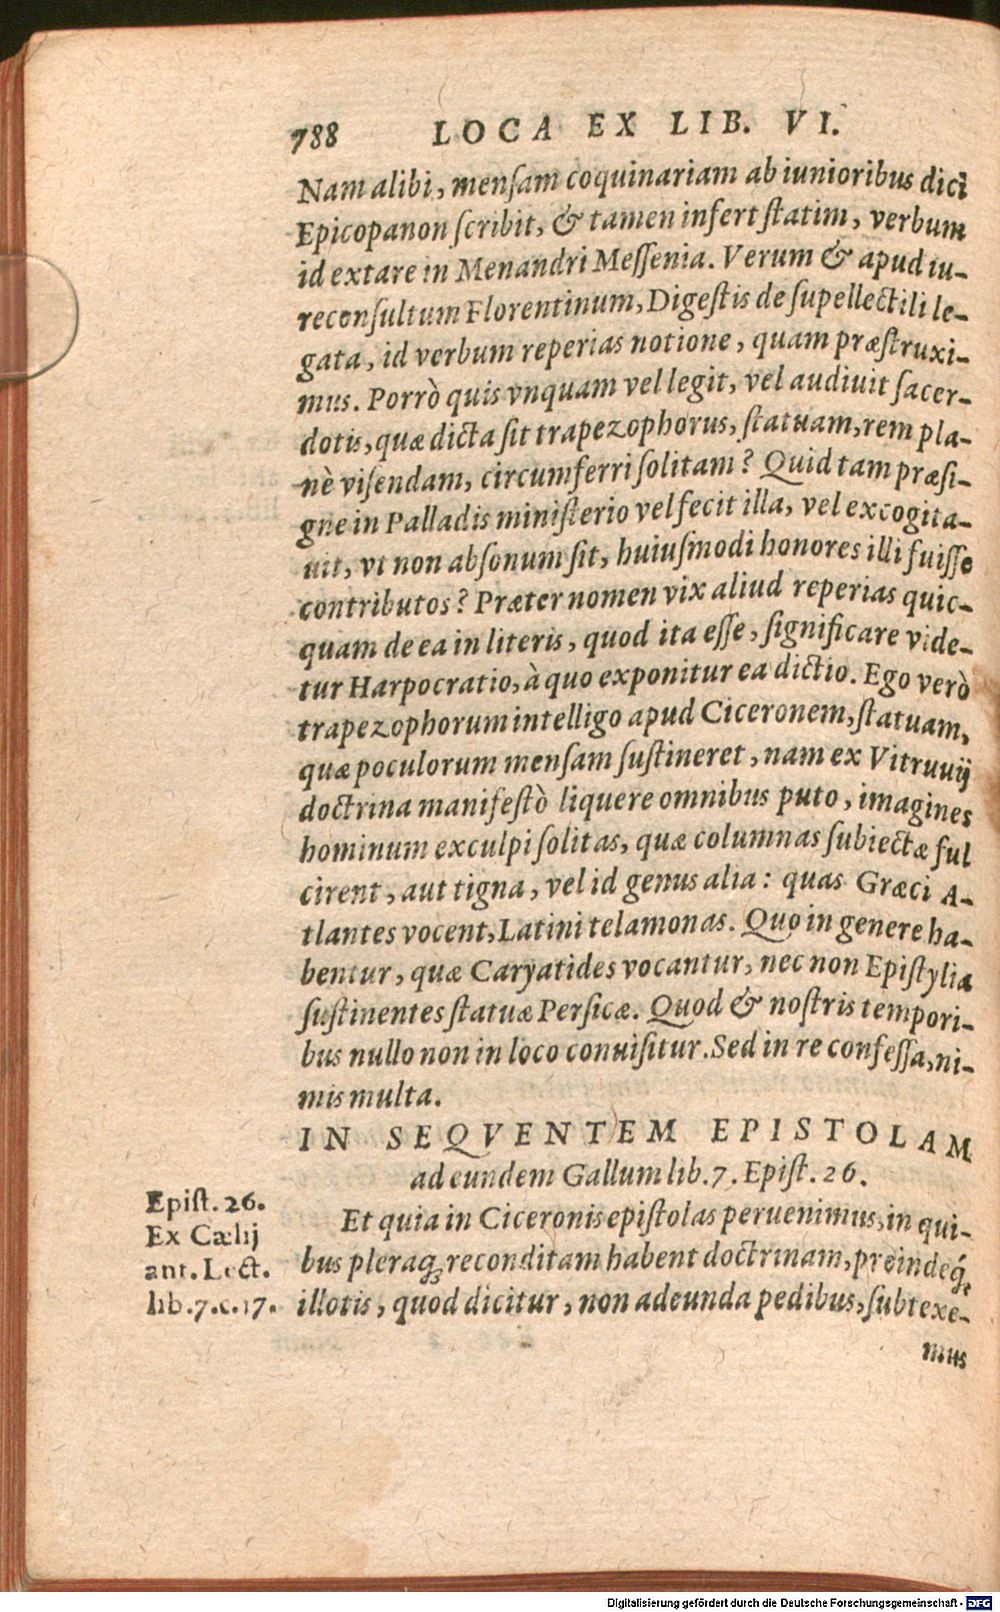 788 LOCA EX LIB. VI.
Nam alibi, menſam coquinariam ab iunioribus dici
Epicopanon ſcribit, & tamen infert ſtatim, verbum
id extare in Menandri Meſſenia. Verum & apud iu-
reconſultum Florentinum, Digeſtis de ſupellectili le-
gata, id verbum reperias notione, quam præſtruxi-
mus. Porrò quis vnquam vel legit, vel audiuit ſacer-
dotis, quæ dicta ſit trapezophorus, ſtatuam, rem pla-
nè viſendam, circumferri ſolitam? Quid tam præſi-
gne in Palladis miniſterio vel fecit illa, vel excogita-
uit, vt non abſonum ſit, huiuſmodi honores illi fuiſſe
contributos? Præter nomen vix aliud reperias quic-
quam de ea in literis, quod ita eſſe, ſignificare vide-
tur Harpocratio, à quo exponitur ea dictio. Ego verò
trapezophorum intelligo apud Ciceronem, ſtatuam,
quæ poculorum menſam ſuſtineret, nam ex Vitruuij
doctrina manifeſtò liquere omnibus puto, imagines
hominum exculpi ſolitas, quæ columnas ſubiectæ ful
cirent, aut tigna, vel id genus alia: quas Græci A-
tlantes vocent, Latini telamonas. Quo in genere ha-
bentur, quæ Caryatides vocantur, nec non Epiſtylia
ſuſtinentes ſtatuæ Perſicæ. Quod & noſtris tempori-
bus nullo non in loco conuiſitur. Sed in re confeſſa, ni-
mis multa.
IN SEQVENTEM EPISTOLAM
ad eundem Gallum lib. 7. Epiſt. 26.
Epiſt. 26.
Ex Cælij
ant. Lect.
lib. 7. c. 17.
Et quia in Ciceronis epiſtolas peruenimus, in qui-
bus pleraq; reconditam habent doctrinam, proindeq́;
illotis, quod dicitur, non adeunda pedibus, ſubtexe-
mus
Digitalisierung gefördert durch die Deutsche Forschungsgemeinschaft - DFG